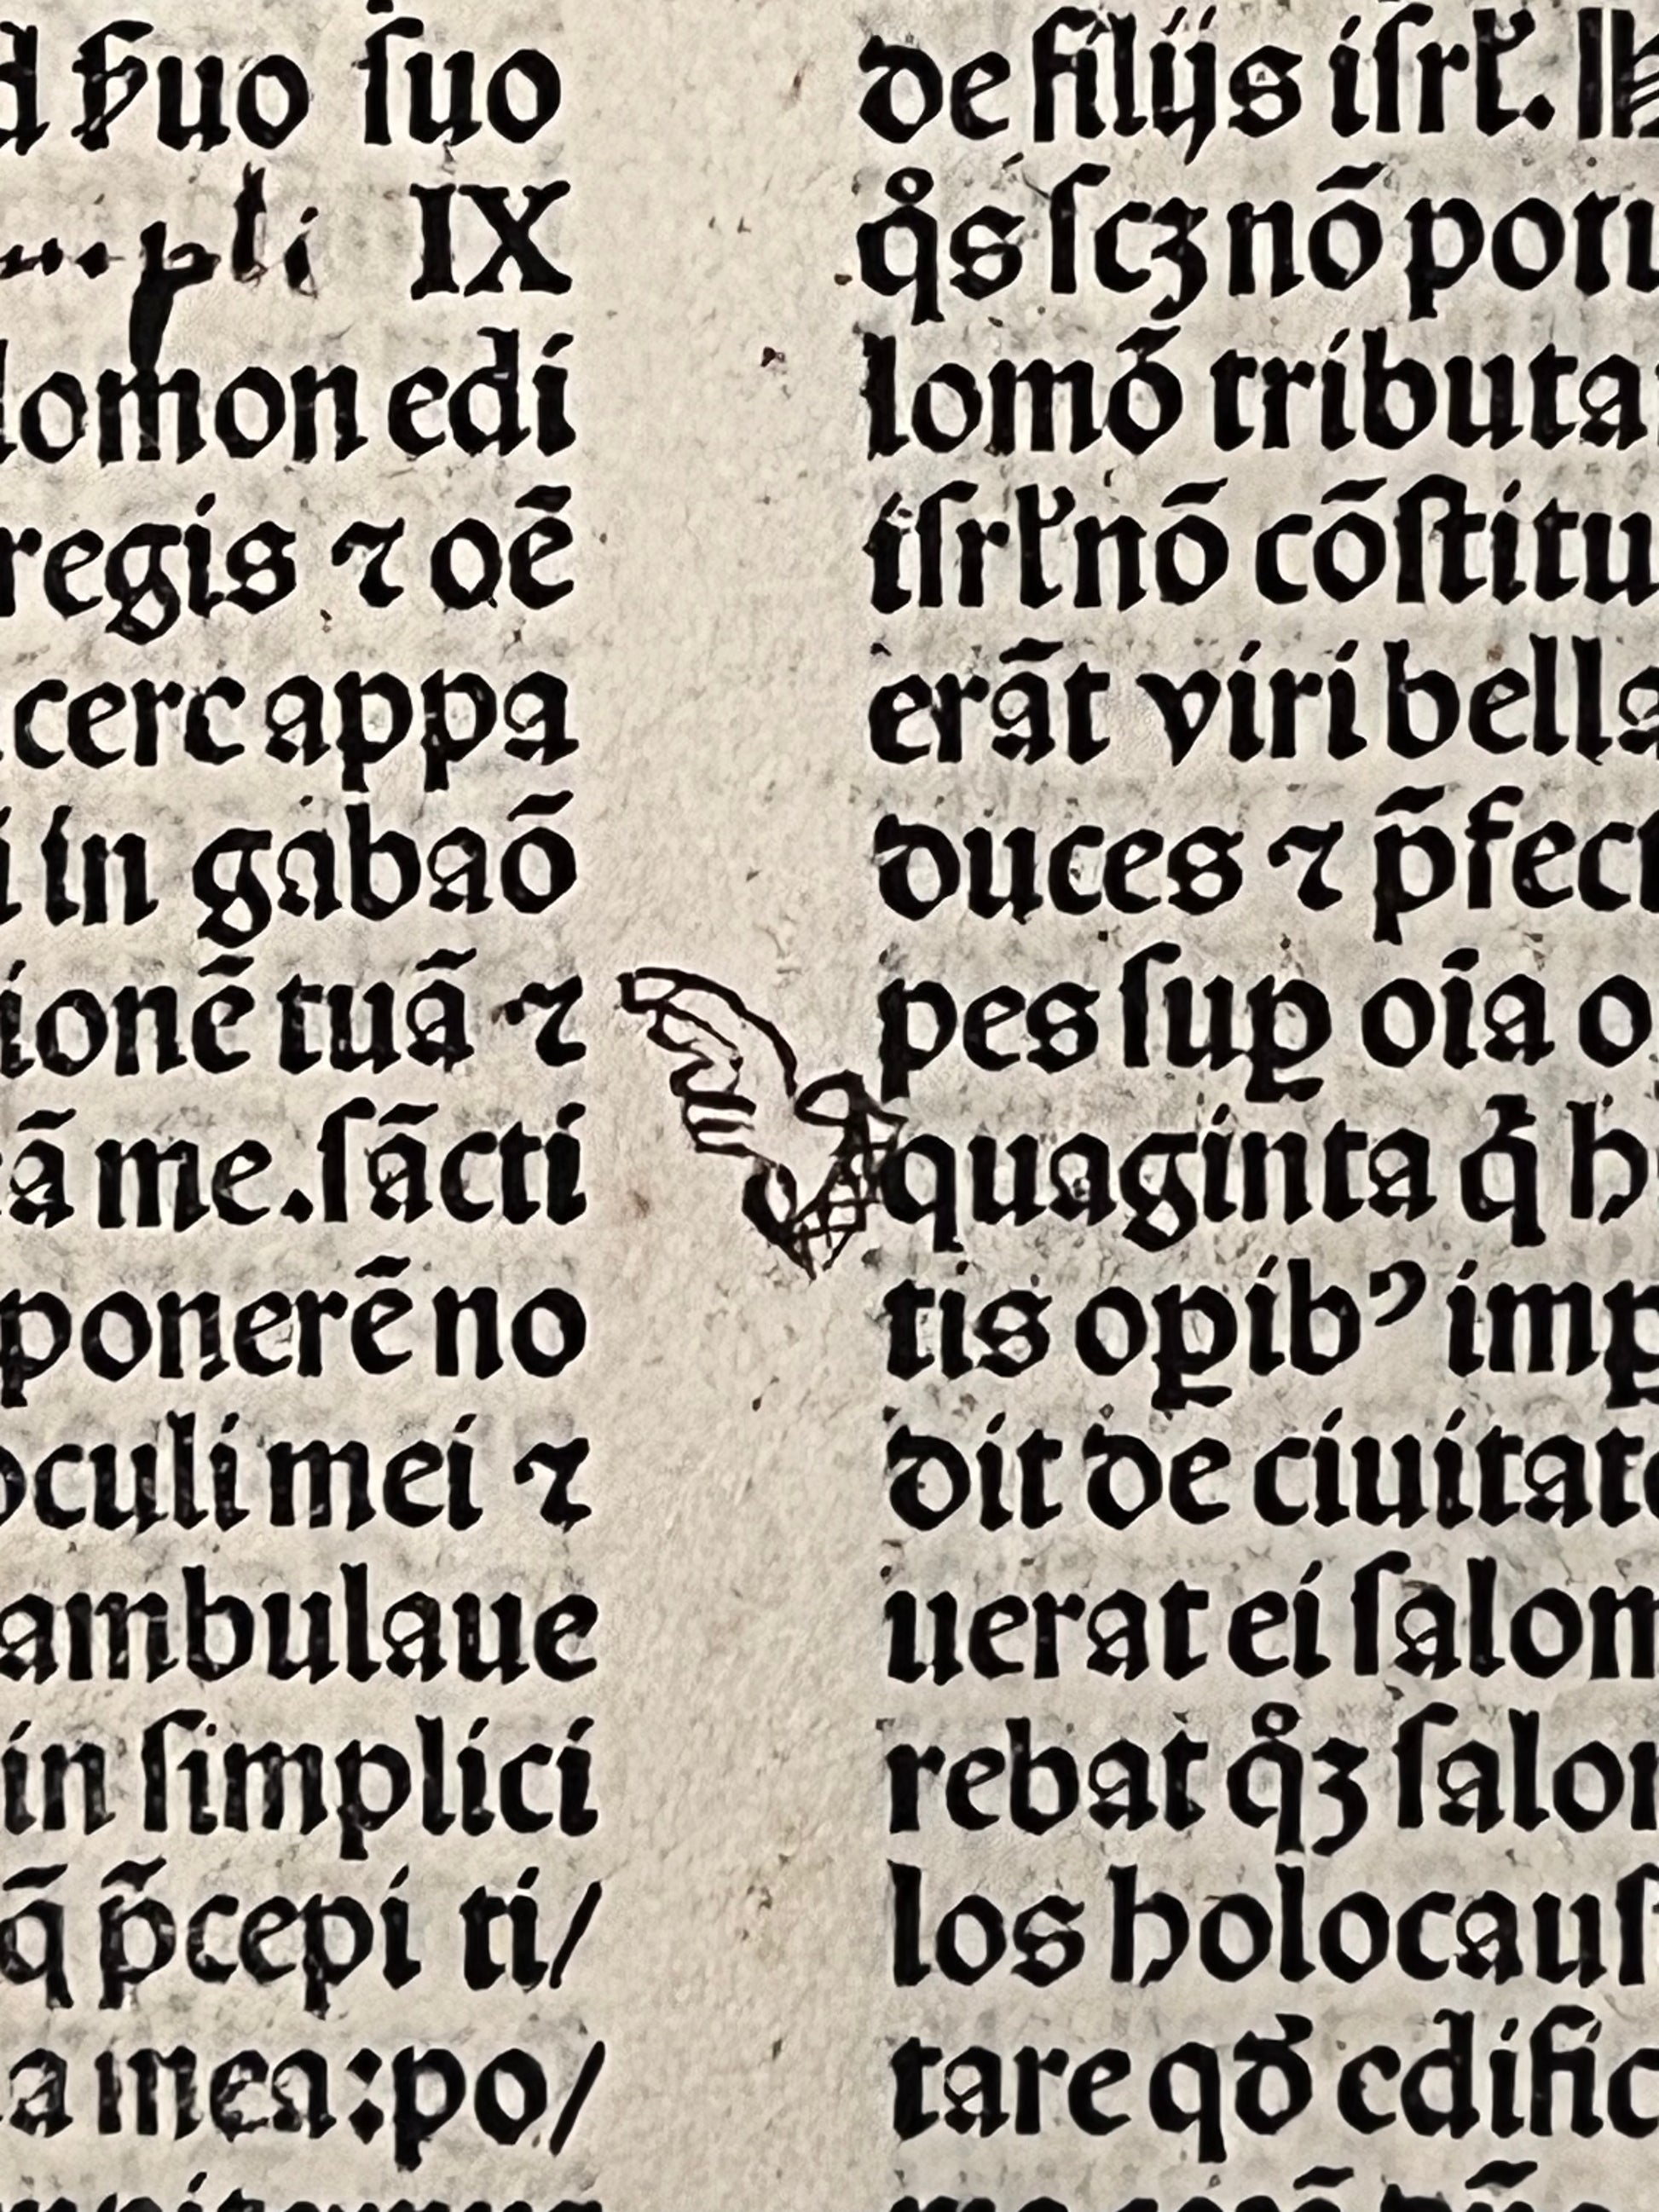 suo ſuo
IX
lomon edi
regis ⁊ oē
cerc appa
in gabaō
ionē tuā ⁊
ā me. ſācti
ponerē no
oculi mei ⁊
ambulaue
in ſimplici
q̄ p̄cepi ti/
a mea: po/
de filijs iſrl̓.
q̊s ſcꝫ nō potu
lomō tributa
iſrl̓ nō cōſtitu
erāt viri bella
duces ⁊ p̄fect
pes ſuꝑ oīa o
quaginta q̄ h
tis oꝑib⁹ imꝑ
dit de ciuitate
uerat ei ſalom
rebat q̊ꝫ ſalom
los holocauſ
tare qđ edific